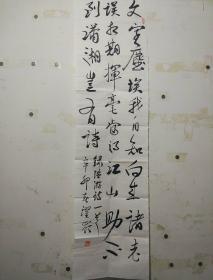 文字塵埃我自知向来諸老
誤相期揮毫當得江山助不
到瀟湘豈有詩
録陸游詩一首
辛卯